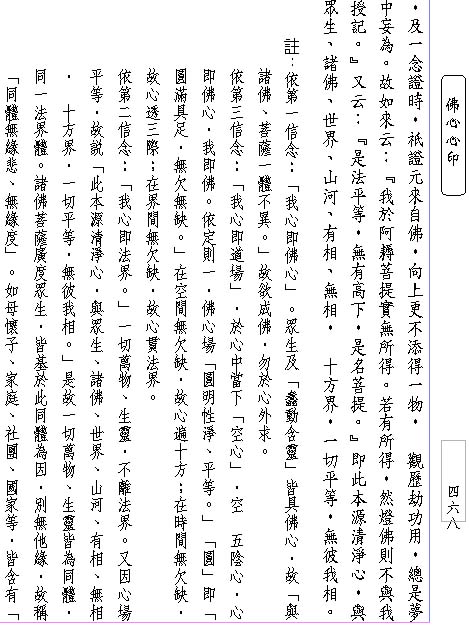 佛心心印
四六八
，及一念證時，祇證元來自佛，向上更不添得一物，　觀歷劫功用，總是夢
中妄為。故如來云：『我於阿耨菩提實無所得。若有所得，然燈佛則不與我
授記。』又云：『是法平等，無有高下，是名菩提。』即此本源清淨心，與
眾生、諸佛、世界、山河、有相、無相，　十方界，一切平等，無彼我相。
註：依第一信念：「我心即佛心」。眾生及「蠢動含靈」皆具佛心，故「與
諸佛、菩薩一體不異。」故欲成佛，勿於心外求。
依第三信念：「我心即道場」，於心中當下「空心」，空　五陰心，心
即佛心，我即佛。依定則一，佛心場「圓明性淨、平等。」「圓」即「
圓滿具足，無欠無缺。」在空間無欠缺，故心遍十方；在時間無欠缺，
故心透三際；在界間無欠缺，故心貫法界。
依第二信念：「我心即法界。」一切萬物、生靈，不離法界。又因心場
平等，故說「此本源清淨心，與眾生、諸佛、世界、山河、有相、無相
，　十方界，一切平等，無彼我相。」是故一切萬物、生靈皆為同體，
同一法界體。諸佛菩薩廣度眾生，皆基於此同體為因，別無他緣，故稱
「同體無緣悲、無緣度」。如母懷子、家庭、社團、國家等，皆含有「